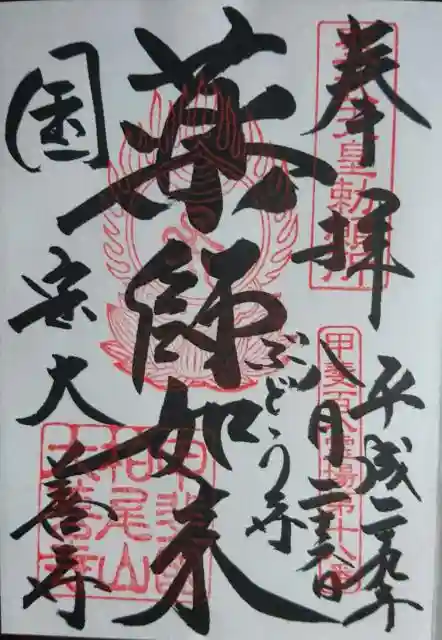 奉拝
平成二十九年
八月二十六日
ぶどう寺
薬師如来
国宝大善寺
甲斐百八霊場第十八番
甲斐国
柏尾山
大善寺